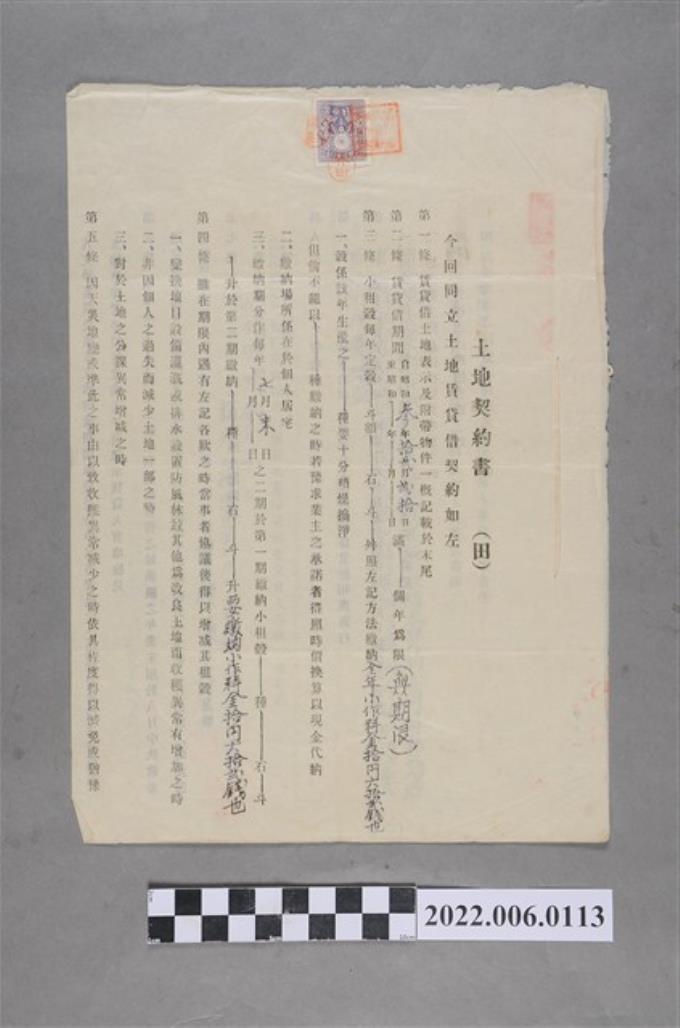 土地契約書 (田)
今回同立土地賃貸借契約如左
第一條 賃貸借土地表示及附帶物件一概記載於末尾
第二條 賃貸借期間自昭和叁年 月貳拾 日 至昭和 年 月 日 滿 個年爲限(無期限)
第三條 小租穀每年定穀 斗額 石 斗 外照左記方法繳納全年小作料金拾円六拾貳錢也
一、穀係該年生產之 種要十分晒燥搧淨
但倘不能以 種繳納之時若預求業主之承諾者得照時價換算以現金代納
二、繳納場所係在於個人居宅
三、繳納期分作每年七月末日 月 日之二期於第一期繳納小租穀 種 石 斗
升於第二期繳納 種 石 斗 升要繳納小作料金拾円六拾貳錢也
第四條 雖在期限內遇有左記各款之時當事者協議後得以增減其租穀
一、變換地目設備灌漑或排水設置防風林並其他爲改良土地而收穫異常有增加之時
二、非因個人之過失而減少土地一部之時
三、對於土地之公課異常增減之時
第五條 因天災地變或準此之事由以致收穫異常減少之時依其程度得以減免或猶豫
2022.006.0113